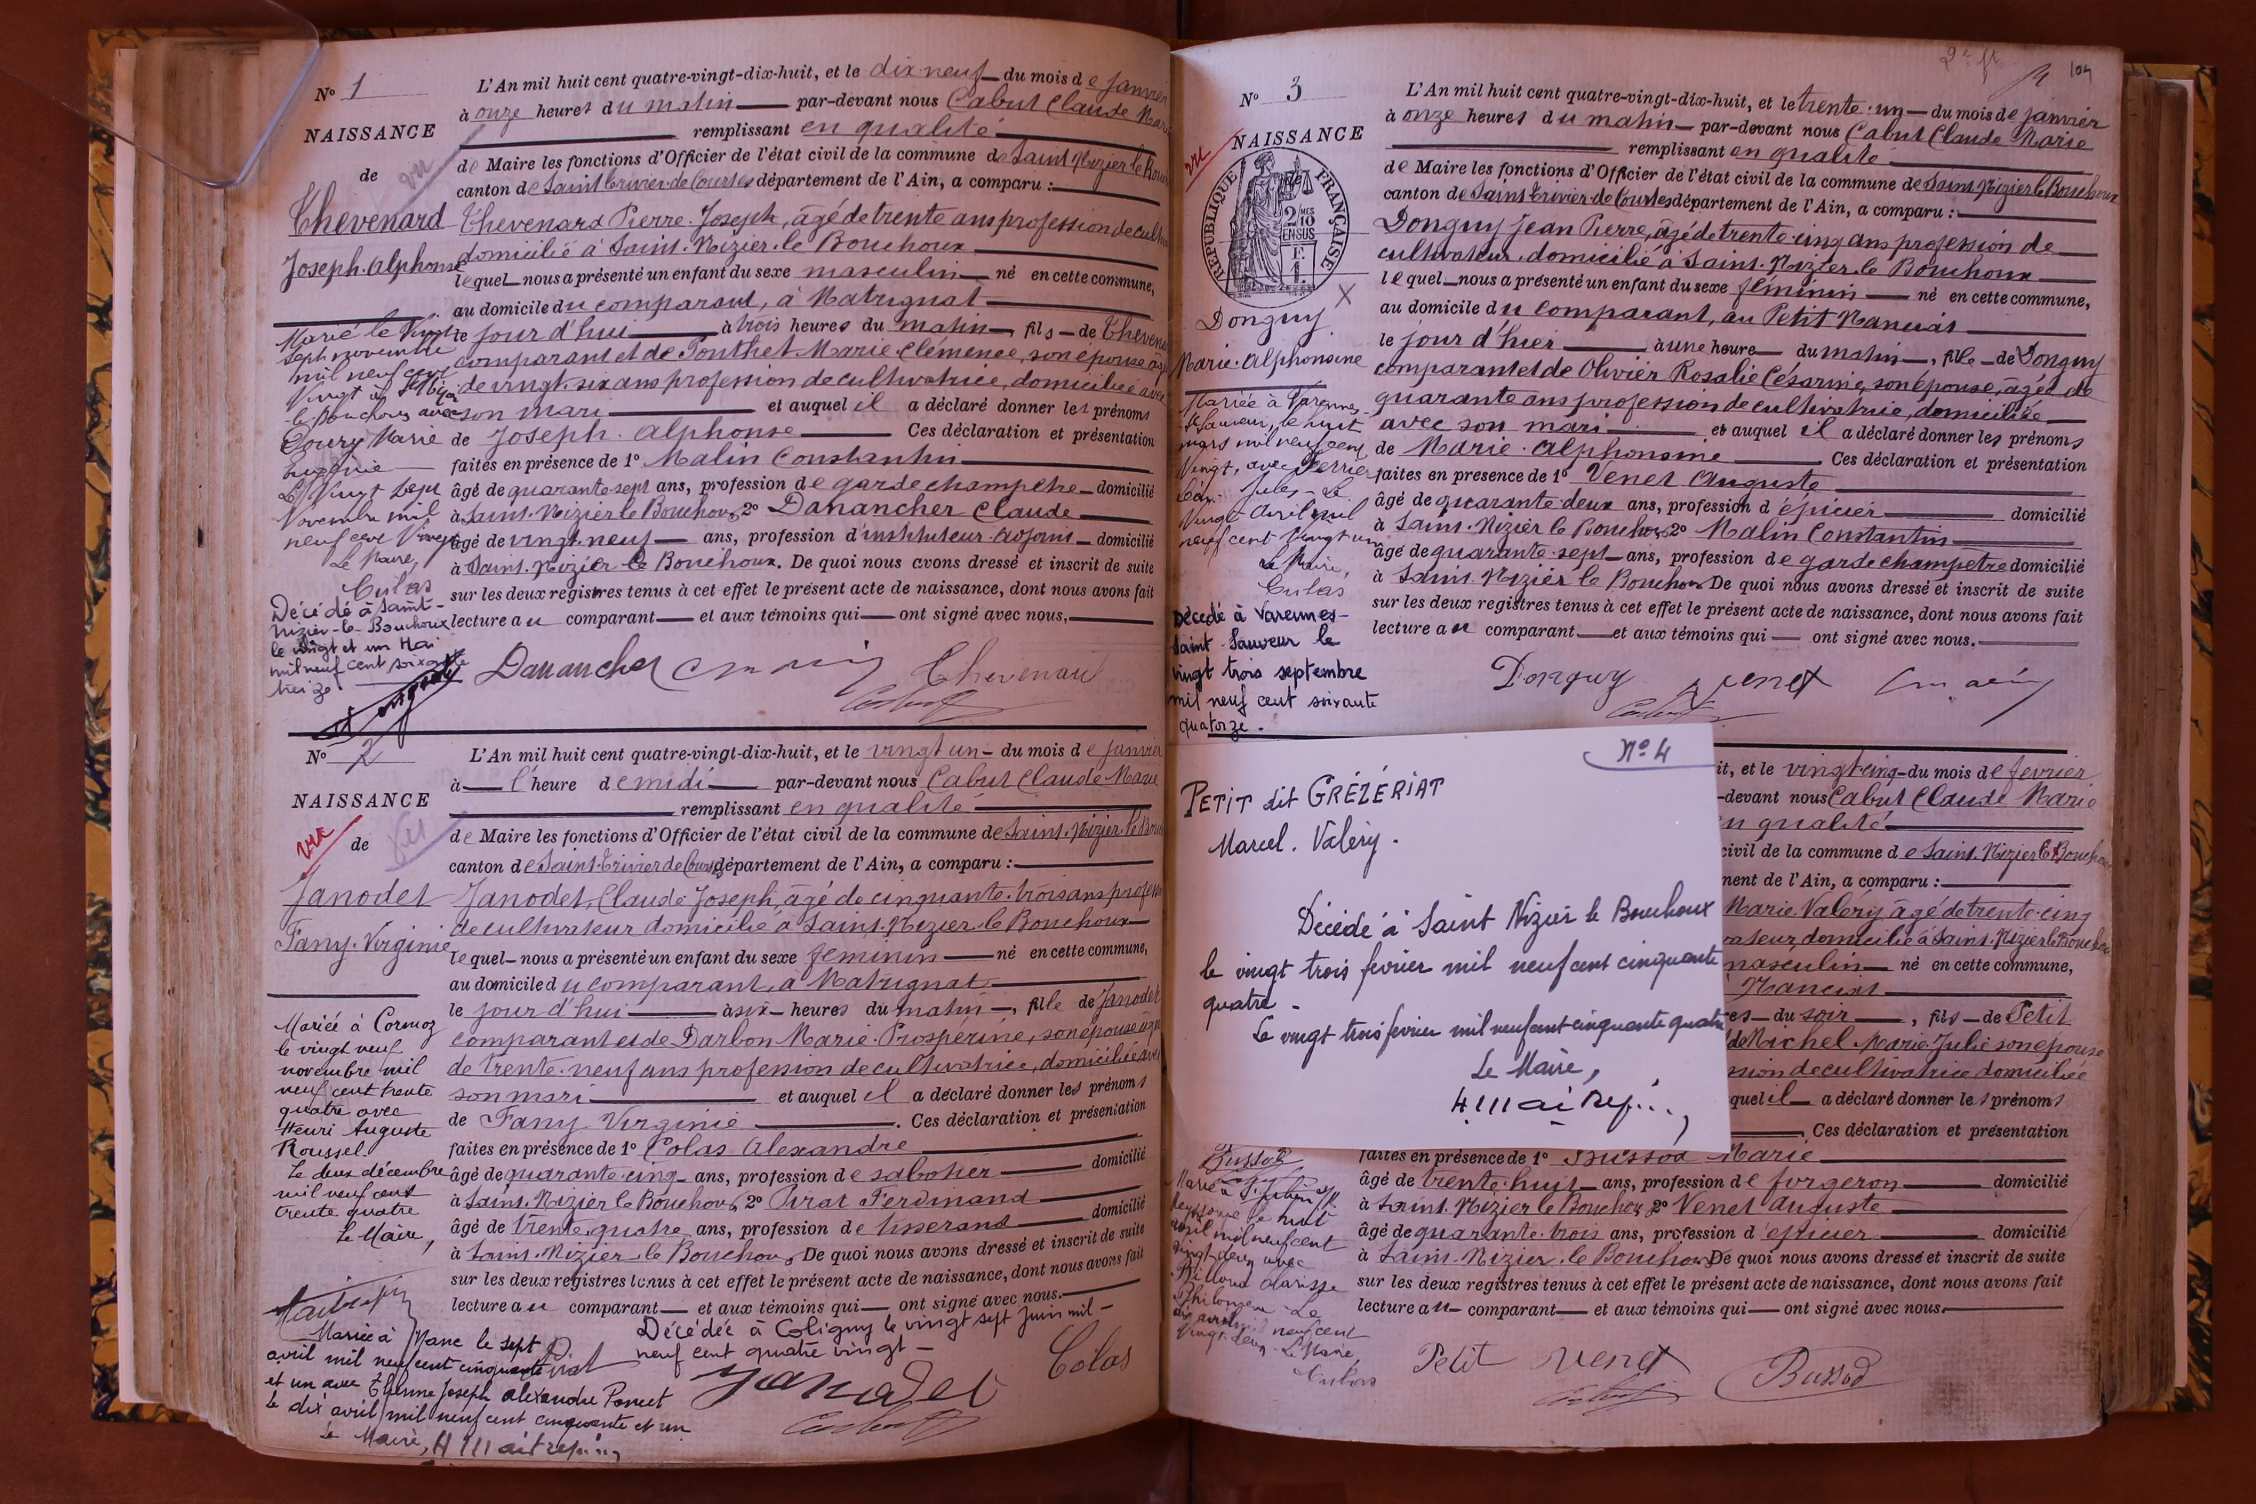 N° 1
NAISSANCE
de
vu
Thevenard
Joseph-Alphonse
Marié le Vingt
sept novembre
mil neuf cent
Vingt à St Nizier
le Bouchoux avec
Coury Marie
Eugénie
Le Vingt sept
Novembre mil
neuf cent Vingt
Le Maire,
Culas
Décédé à Saint-
Nizier-le-Bouchoux
le vingt et un Mai
mil neuf cent soixante
treize
L'An mil huit cent quatre-vingt-dix-huit, et le dix neuf du mois de janvier
à onze heures du matin par-devant nous Cabut Claude Marie
remplissant en qualité
de Maire les fonctions d'Officier de l'état civil de la commune de Saint Nizier le Bouchoux
canton de Saint Trivier de Courtes département de l'Ain, a comparu :
Thevenard Pierre Joseph, âgé de trente ans profession de cultivateur
domicilié à Saint-Nizier-le Bouchoux
lequel nous a présenté un enfant du sexe masculin né en cette commune,
au domicile du comparant, à Matrignat
le jour d'hui à trois heures du matin, fils de Thevenard
comparant et de Ponthet Marie Clémence, son épouse âgée
de vingt-six ans profession de cultivatrice, domiciliée avec
son mari et auquel il a déclaré donner les prénoms
de Joseph-Alphonse Ces déclaration et présentation
faites en présence de 1° Malin Constantin
âgé de quarante sept ans, profession de garde champêtre domicilié
à Saint-Nizier le Bouchoux, 2° Danancher Claude
âgé de vingt-neuf ans, profession d'instituteur adjoint domicilié
à Saint-Nizier le Bouchoux. De quoi nous avons dressé et inscrit de suite
sur les deux registres tenus à cet effet le présent acte de naissance, dont nous avons fait
lecture au comparant et aux témoins qui ont signé avec nous.
Danancher C Malin Thevenard
Cabut
N° 2
NAISSANCE
vu
de
vu
Janodet
Fany-Virginie
Mariée à Cormoz
le vingt neuf
novembre mil
neuf cent trente
quatre avec
Henri Auguste
Roussel
Le deux décembre
mil neuf cent
trente quatre
Le Maire,
L'An mil huit cent quatre-vingt-dix-huit, et le vingt un du mois de janvier
à l'heure de midi par-devant nous Cabut Claude Marie
remplissant en qualité
de Maire les fonctions d'Officier de l'état civil de la commune de Saint-Nizier-le Bouchoux
canton de Saint-Trivier de Courtes département de l'Ain, a comparu :
Janodet, Claude Joseph, âgé de cinquante-trois ans profession
de cultivateur domicilié à Saint-Nizier-le Bouchoux
lequel nous a présenté un enfant du sexe féminin né en cette commune,
au domicile du comparant, à Matrignat
le jour d'hui à six heures du matin, fille de Janodet
comparant et de Darbon Marie-Prospérine, son épouse âgée
de trente-neuf ans profession de cultivatrice, domiciliée avec
son mari et auquel il a déclaré donner les prénoms
de Fany Virginie. Ces déclaration et présentation
faites en présence de 1° Colas Alexandre
âgé de quarante-cinq ans, profession de sabotier domicilié
à Saint-Nizier le Bouchoux, 2° Pirat Ferdinand
âgé de trente-quatre ans, profession de tisserand domicilié
à Saint-Nizier-le Bouchoux, De quoi nous avons dressé et inscrit de suite
sur les deux registres tenus à cet effet le présent acte de naissance, dont nous avons fait
lecture au comparant et aux témoins qui ont signé avec nous.
Décédée à Coligny le vingt sept juin mil-
neuf cent quatre vingt-
Mariée à Nanc le sept
avril mil neuf cent cinquante
et un avec Etienne Joseph Alexandre Poncet
le dix avril mil neuf cent cinquante et un
Le Maire,
Pirat
Janodet
Colas
Cabut
104
N° 3
vu
NAISSANCE
de
RÉPUBLIQUE FRANÇAISE
2/10 MES
EN SUS
Donguy
Marie-Alphonsine
Mariée à Varennes
St Sauveur, le huit
mars mil neuf cent
Vingt, avec Perrier
Jules - Le
Vingt Avril mil
neuf cent Vingt un
Le Maire,
Culas
Décédé à Varennes-
Saint-Sauveur le
vingt trois septembre
mil neuf cent soixante
quatorze.
L'An mil huit cent quatre-vingt-dix-huit, et le trente-un du mois de janvier
à onze heures du matin par-devant nous Cabut Claude Marie
remplissant en qualité
de Maire les fonctions d'Officier de l'état civil de la commune de Saint-Nizier le Bouchoux
canton de Saint-Trivier-de Courtes département de l'Ain, a comparu :
Donguy Jean Pierre, âgé de trente-cinq ans profession de
cultivateur, domicilié à Saint-Nizier-le Bouchoux
lequel nous a présenté un enfant du sexe féminin né en cette commune,
au domicile du comparant, au Petit Manciat
le jour d'hier à une heure du matin, fille de Donguy
comparant et de Olivier Rosalie Césarine, son épouse, âgée de
quarante ans profession de cultivatrice, domiciliée
avec son mari et auquel il a déclaré donner les prénoms
de Marie-Alphonsine Ces déclaration et présentation
faites en présence de 1° Venet Auguste
âgé de quarante-deux ans, profession d'épicier domicilié
à Saint-Nizier le Bouchoux 2° Malin Constantin
âgé de quarante-sept ans, profession de garde champêtre domicilié
à Saint-Nizier le Bouchoux De quoi nous avons dressé et inscrit de suite
sur les deux registres tenus à cet effet le présent acte de naissance, dont nous avons fait
lecture au comparant et aux témoins qui ont signé avec nous.
Donguy Venet C Malin
Cabut
N° 4
PETIT dit GRÉZÉRIAT
Marcel. Valéry.
Décédé à Saint Nizier le Bouchoux
le vingt trois fevrier mil neuf cent cinquante
quatre -
Le vingt trois fevrier mil neuf cent cinquante quatre
Le Maire,
it, et le vingt-cinq du mois de fevrier
-devant nous Cabut Claude Marie
en qualité
civil de la commune de Saint-Nizier le Bouchoux
ment de l'Ain, a comparu :
Marie Valéry âgé de trente-cinq
vateur, domicilié à Saint-Nizier le Bouchoux
masculin né en cette commune,
Manciat
es du soir, fils de Petit
de Michel Marie Julie son épouse
sion de cultivatrice domiciliée
quel il a déclaré donner les prénoms
Ces déclaration et présentation
faites en présence de 1° Bussod Marie
âgé de trente-huit ans, profession de forgeron domicilié
à Saint-Nizier le Bouchoux 2° Venet Auguste
âgé de quarante-trois ans, profession d'épicier domicilié
à Saint-Nizier-le Bouchoux De quoi nous avons dressé et inscrit de suite
sur les deux registres tenus à cet effet le présent acte de naissance, dont nous avons fait
lecture au comparant et aux témoins qui ont signé avec nous.
Bussod
le huit
avril mil neuf cent
vingt-deux avec
Clarisse
Philomène Le
dix avril mil neuf cent
Vingt-deux Le Maire,
Culas
Petit Venet Bussod
Cabut